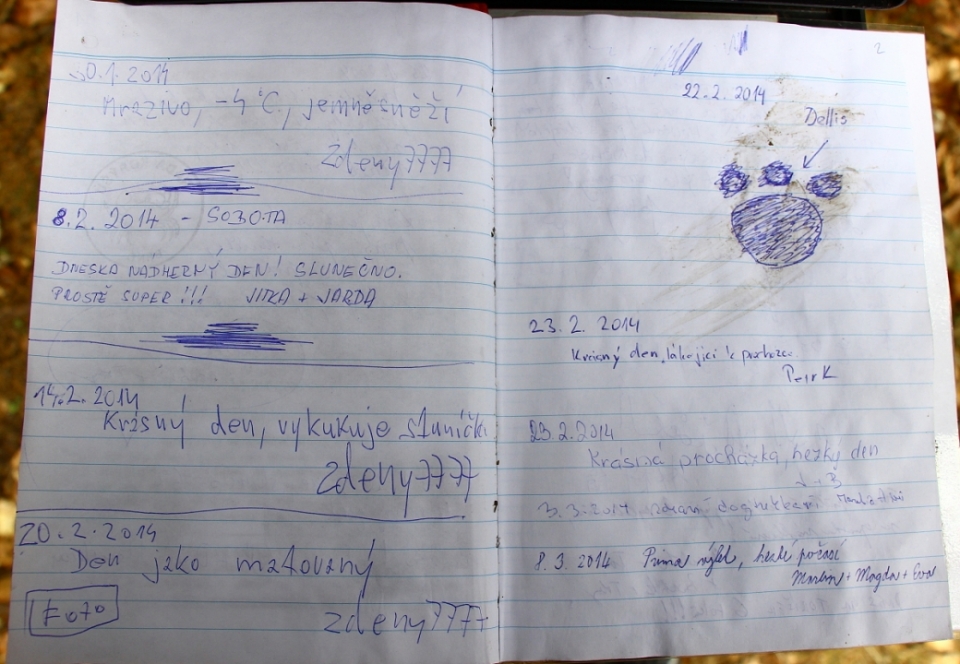 30.1.2014
Mrazivo, -4°C, jemně sněží
Zdeny7777
8.2.2014 - SOBOTA
DNESKA NÁDHERNÝ DEN! SLUNEČNO.
PROSTĚ SUPER!!! JITKA + JARDA
14.2.2014
Krásný den, vykukuje sluníčk
Zdeny7777
20.2.2014
Den jako malovaný
FOTO
zdeny7777
2
22.2.2014
Dellis
23.2.2014
Krásný den, lákající k procházce
Petr K
23.2.2014
Krásná procházka, hezký den
J + B
3.3.2014
8.3.2014 Prima výlet, hezké počasí
Martin + Magda + Eva